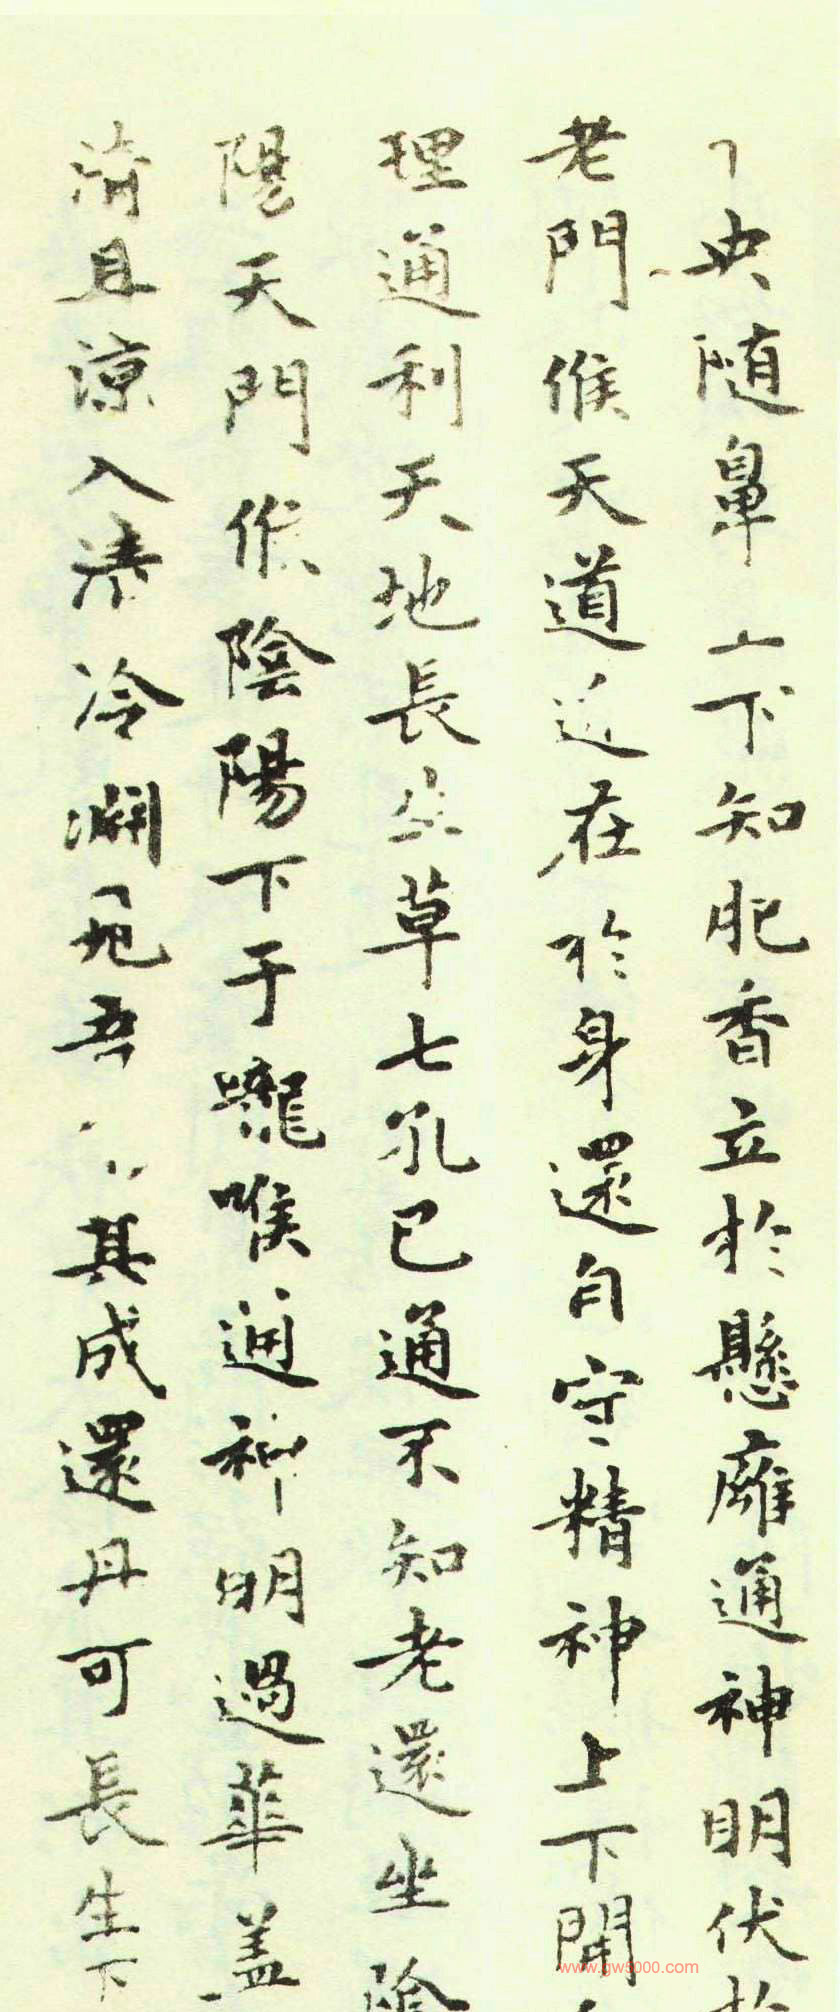 央随鼻上下知肥香立於懸廱通神明伏於
老門候天道近在於身還自守精神上下開
理通利天地長生草七孔已通不知老還坐陰
陽天門候陰陽下于嚨喉通神明過華盖
清且涼入清冷淵見吾其成還丹可長生下
www.jgw5000.com